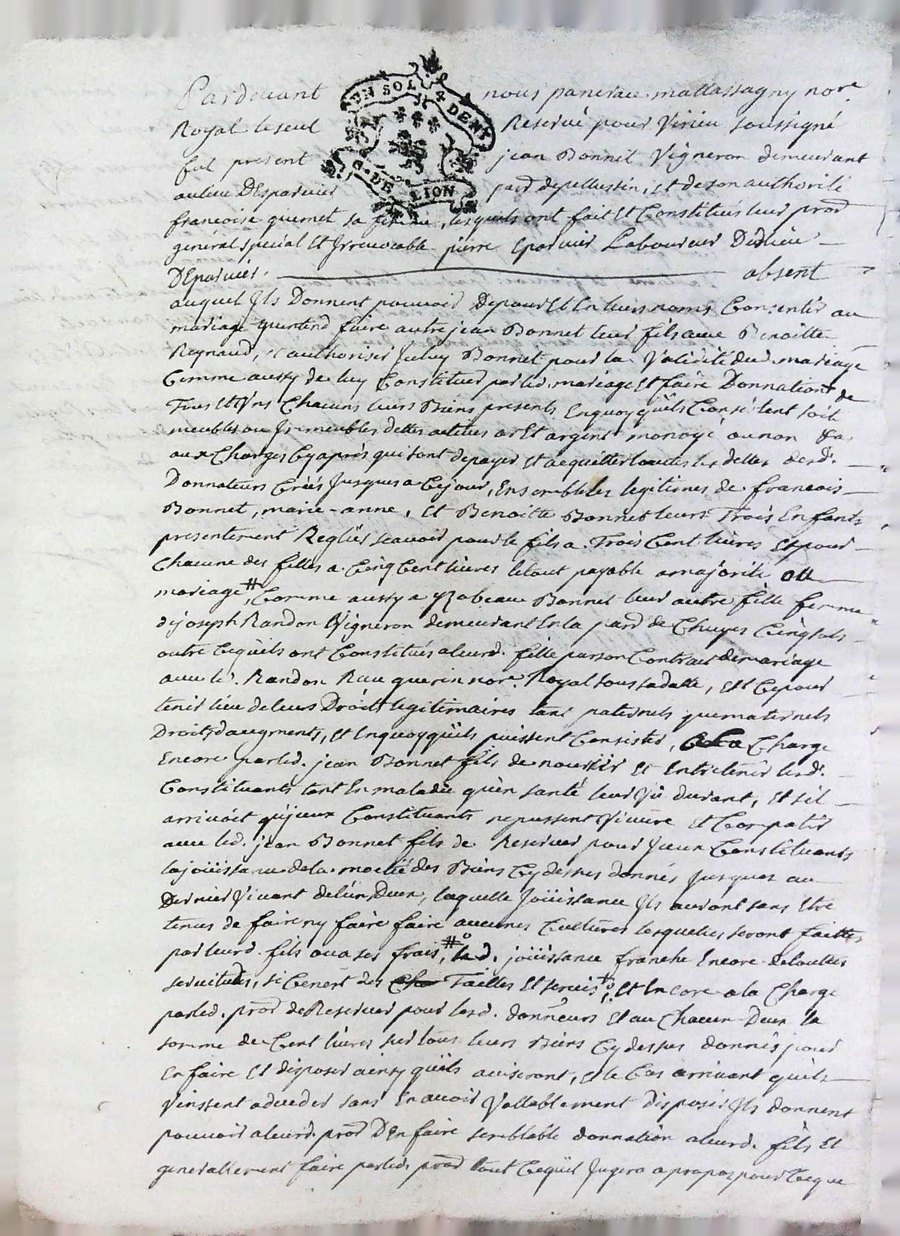 Pardevant nous pancrace mallassagny nore
Royal le seul Reservé pour Virieu soussigné
fut present jean Bonnet Vigneron demeurant
au lieu DEsparvier par. de pellussin, et de son authorité
françoise quernet sa femme, lesquels ont fait Et Constitués leur pror
général special Et Irrevocable pierre Eparvier Laboureur Dud. lieu
DEparvier. absent
auquel Ils Donnent pouvoir De pour Et En leurs noms Consentir au
mariage qu'entend faire autre jean Bonnet leur fils avec Benoitte
Reynaud, authoriser Iceluy Bonnet pour la Validité dud. mariage
Comme aussy de luy Constituer par led. mariage Et faire Donnation de
Tous Et Uns Chacuns leurs Biens presents, En quoy qu'ils Consistent soit
meubles ou Immeubles dettes actives or Et argent monoyé ou non &a.
aux Charges Cy apres qui sont de payer Et acquitter toutes les dettes desd.
Donnateurs Créés Jusques a Ce jour, Ensemble les legitimes de francois
Bonnet, marie-anne, Et Benoitte Bonnet leurs Trois Enfants
presentement Reglées scavoir pour le fils a Trois Cent livres Et pour
Chacune des filles a Cinq Cent livres le tout payable a majorité ou
mariage #, Comme aussy a Yzabeau Bonnet leur autre fille femme
a joseph Randon Vigneron demeurant En la par. de Chuyes Cinq sols
outre Ce qu'ils ont Constitués a leurd. fille par son Contrat de mariage
avec led. Randon Reçu querin nore Royal sous sa datte, Et Ce pour
tenir lieu de leurs Droits legitimaires tant paternels que maternels
Droits d'augments, Et En quoy qu'ils puissent Consister, a la Charge
Encore par led. jean Bonnet fils de nourrir Et Entretenir lesd.
Constituants tant En maladie qu'en santé leur Vie durant, Et s'il
arrivoit qu'iceux Constituants ne pussent Vivre Et Compatir
avec led. jean Bonnet fils de Reserver pour Iceux Constituants
la joüissance de la moitié des Biens Cy dessus donnés Jusques au
Dernier Vivant de l'un D'eux, laquelle Joüissance Ils auront sans Etre
tenus de faire ny faire faire aucunes Cultures lesquelles seront faittes
par leurd. fils ou a ses frais #, lad. joüissance franche Encore de touttes
servitudes, si Ce n'est des Tailles Et servis, Et Encore a la Charge
par led. pror de Reserver pour lesd. donneurs Et au Chacun D'eux la
somme de Cent livres sur tous leurs Biens Cy dessus donnés pour
En faire Et disposer ainsy qu'ils aviseront, Et le Cas arrivant qu'ils
Vinssent a deceder sans En avoir Vallablement disposer Ils donnent
pouvoir a leurd. pror D'En faire semblable donnation a leurd. fils Et
generallement faire par led. pror tout Ce qu'il Jugera a propos pour Ce que
UN SOL 4 DENI
G. DE LION